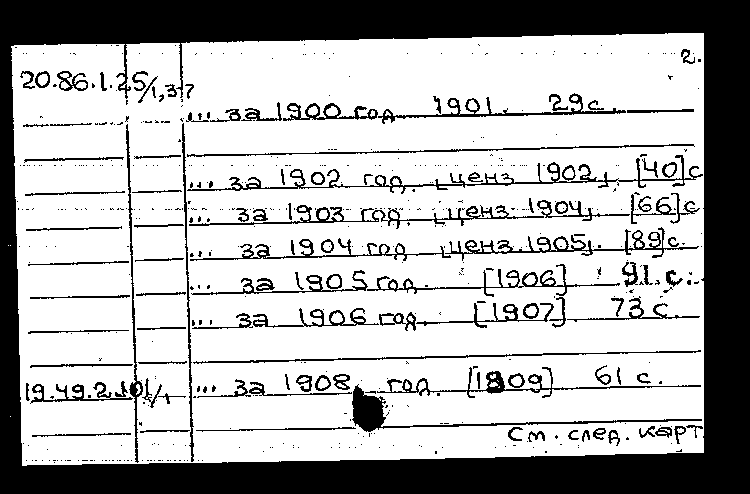 2.
20.86.1.25/1,3-7
... за 1900 год 1901. 29 с.
... за 1902 год. [ценз 1902]. [40] с
... за 1903 год. [ценз. 1904]. [66] с
... за 1904 год [ценз. 1905]. [89] с.
... за 1905 год. [1906] 91 с.
... за 1906 год. [1907]. 73 с.
19.49.2.101/1 ... за 1908 год. [1909] 61 с.
См. след. карт